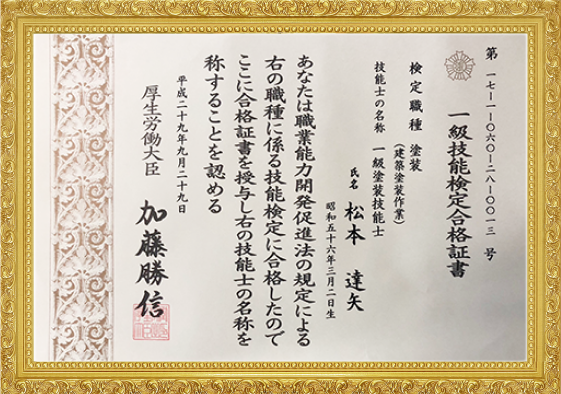 第 一七-一-〇六〇-二八-〇〇一三 号
一級技能検定合格証書
検定職種 塗装
(建築塗装作業)
技能士の名称 一級塗装技能士
氏名 松本 達矢
昭和五十六年三月二日生
あなたは職業能力開発促進法の規定による
右の職種に係る技能検定に合格したので
ここに合格証書を授与し右の技能士の名称を
称することを認める
平成二十九年九月二十九日
厚生労働大臣 加藤勝信